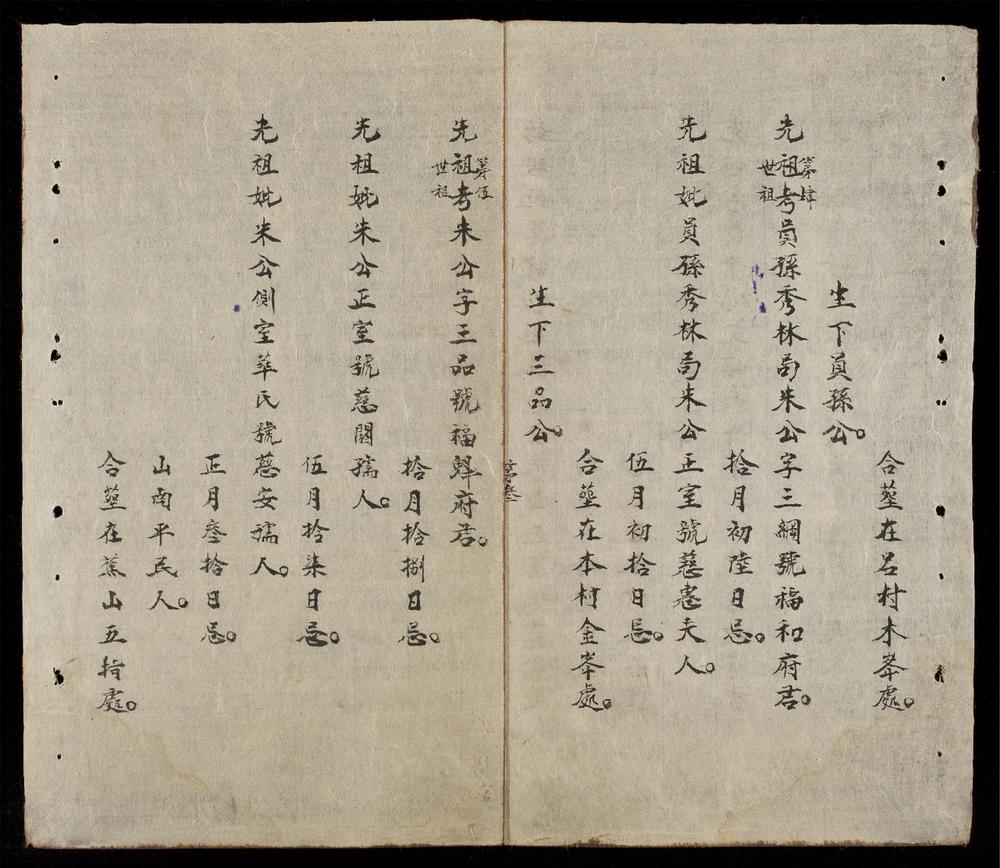 合塟在吕村木峯處。
生下員孫公。
第肆世祖
先祖考員孫秀林局朱公字三綱號福和府君。
拾月初陸日忌。
先祖妣員孫秀林局朱公正室號慈惠夫人。
伍月初拾日忌。
合塟在本村金峯處。
生下三品公。
第叁
第伍世祖
先祖考朱公字三品號福府君。
拾月拾捌日忌。
先祖妣朱公正室號慈閎孺人。
伍月拾柒日忌。
先祖妣朱公側室華氏號慈安孺人。
正月叁拾日忌。
山南平民人。
合塟在蕉山五指處。